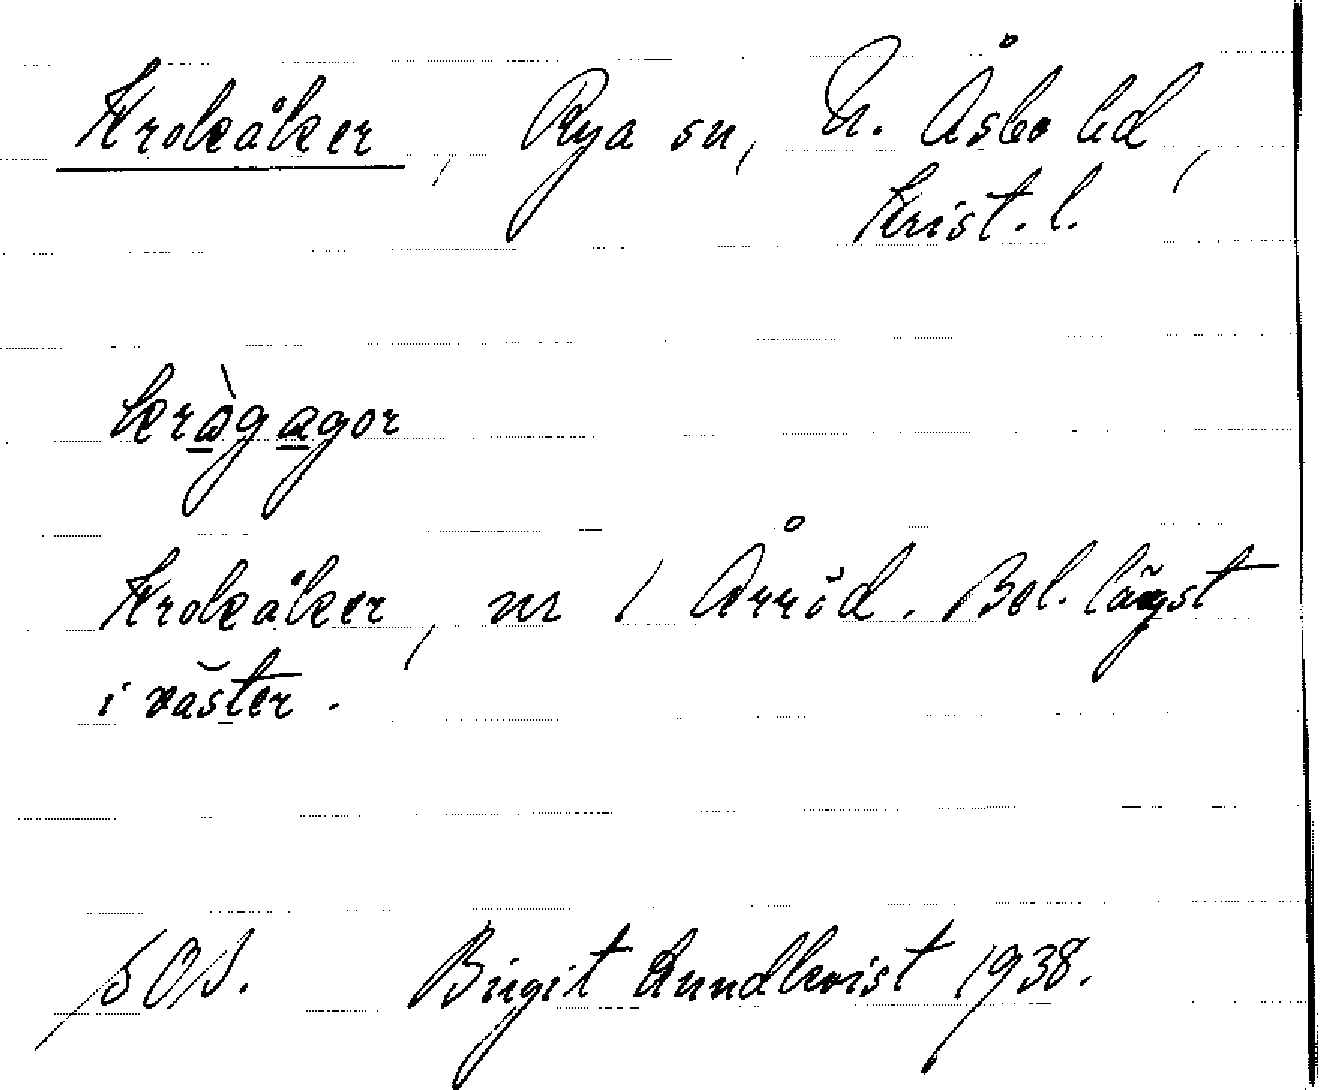 Krokåker, Rya sn, N. Åsbo hd,
Krist. l.
kràgagor
Krokåker, nr 1 Årröd. Bel. längst
i väster.
Birgit Lundkvist 1938.